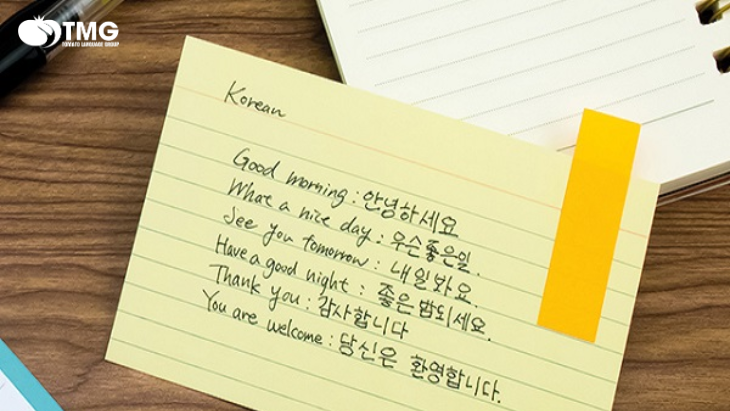 TMG
TOMATO LANGUAGE GROUP
Korean
Good morning : 안녕하세요
What a nice day : 우슨좋은일.
See you tomorrow : 내일봐요.
Have a good night : 좋은밤되세요.
Thank you : 감사합니다
You are welcome : 당신은 환영합니다.